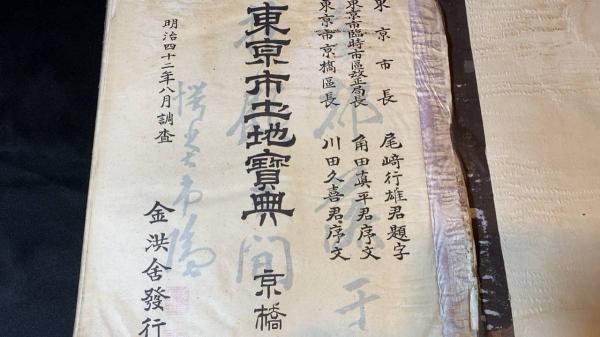 東京市長　尾﨑行雄君題字
東京市臨時市區改正局長　角田真平君序文
東京市京橋區長　川田久喜君序文
東京市土地寶典　京橋
明治四十二年八月調査
金洪舍發行